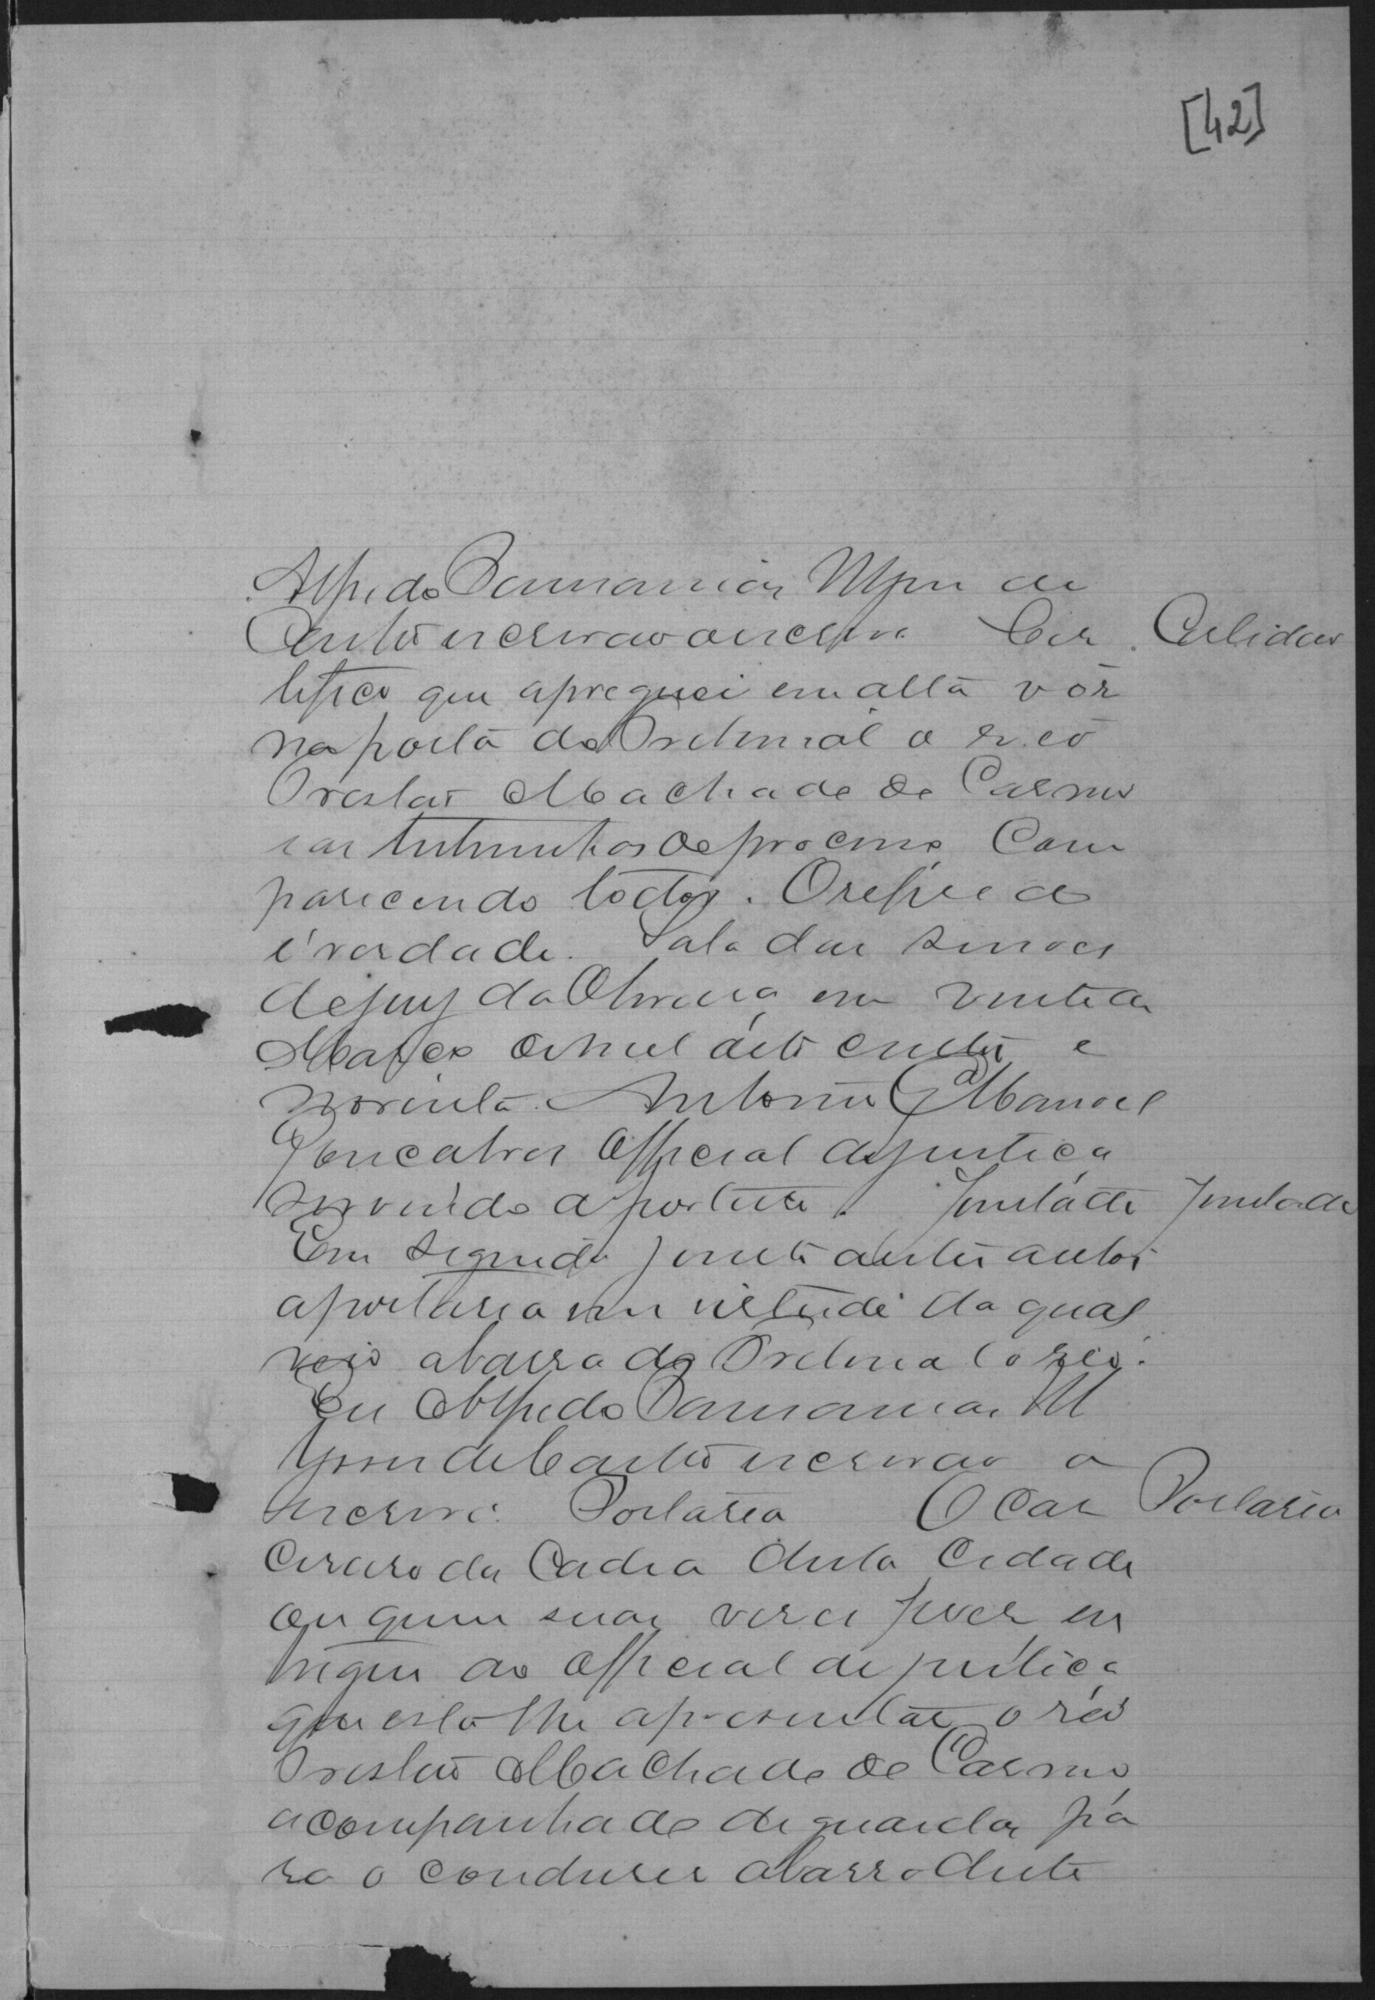 [42]
Alfredo Damaria
Couto escrivão o escrevi Cer Certidão
tifico que apreguei em alta vóz
na porta do Tribunal o réo
Orestes Machado do Carmo
e as testemunhas do processo Com
parecendo todos. O referido
é verdade. Sala das sessoes
do jury da em vinte de
Março de mil oito centos e
noventa. Antonio Manoel
Goncalves Official de justiça
servindo de porteiro. Juntada Juntada
Em seguida junto a estes autos
a portaria em virtude da qual
veio a barra do Tribunal o réo.
Eu Alfredo
de Couto escrivão o
escrevi. Portaria O Car Portaria
cereiro da Cadea desta Cidade
ou quem suas veses fizer en
tregue ao Official de justiça
que esta lhe apresentar o réo
Orestes Machado do Carmo
acompanhado de guardas pa
ra o conduser a barra deste